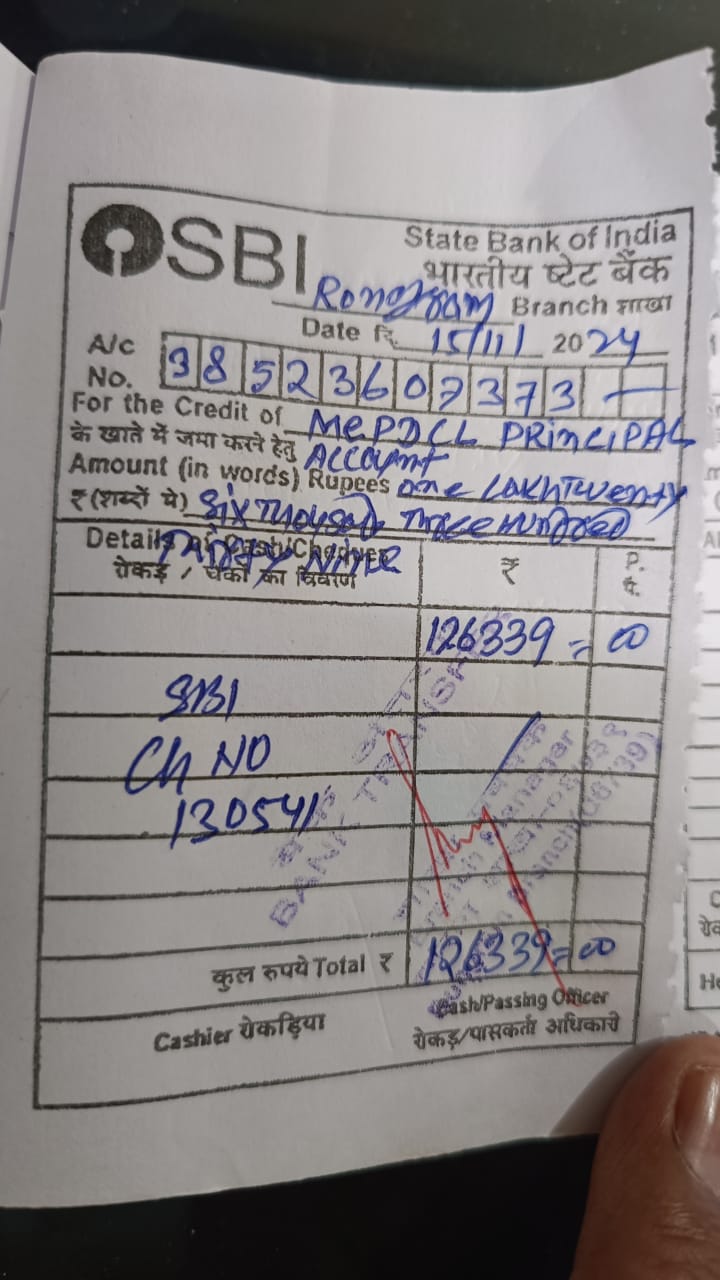 SBI
State Bank of India
भारतीय स्टेट बैंक
Rongram Branch शाखा
Date दि. 15/11/ 2024
A/c No. 38523607373 —
For the Credit of MePDCL PRINCIPAL
के खाते में जमा करने हेतु Account
Amount (in words) Rupees one Lakh Twenty
₹ (शब्दों में) Six Thousand Three Hundred
Thirty Nine
Details of Cash/Cheques ₹ P.
रोकड़ / चेकों का विवरण पै.
126339 = 00
SBI
Ch NO
130541
BANK TRANSFER
Branch Manager
कुल रुपये Total ₹ 126339 = 00
Cash/Passing Officer
Cashier रोकड़िया रोकड़/पासकर्ता अधिकारी